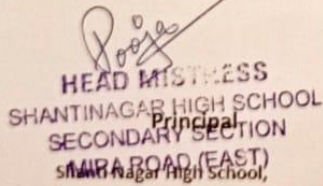 Pooja
HEAD MISTRESS
SHANTINAGAR HIGH SCHOOL
Principal
SECONDARY SECTION
MIRA ROAD (EAST)
Shanti Nagar High School,